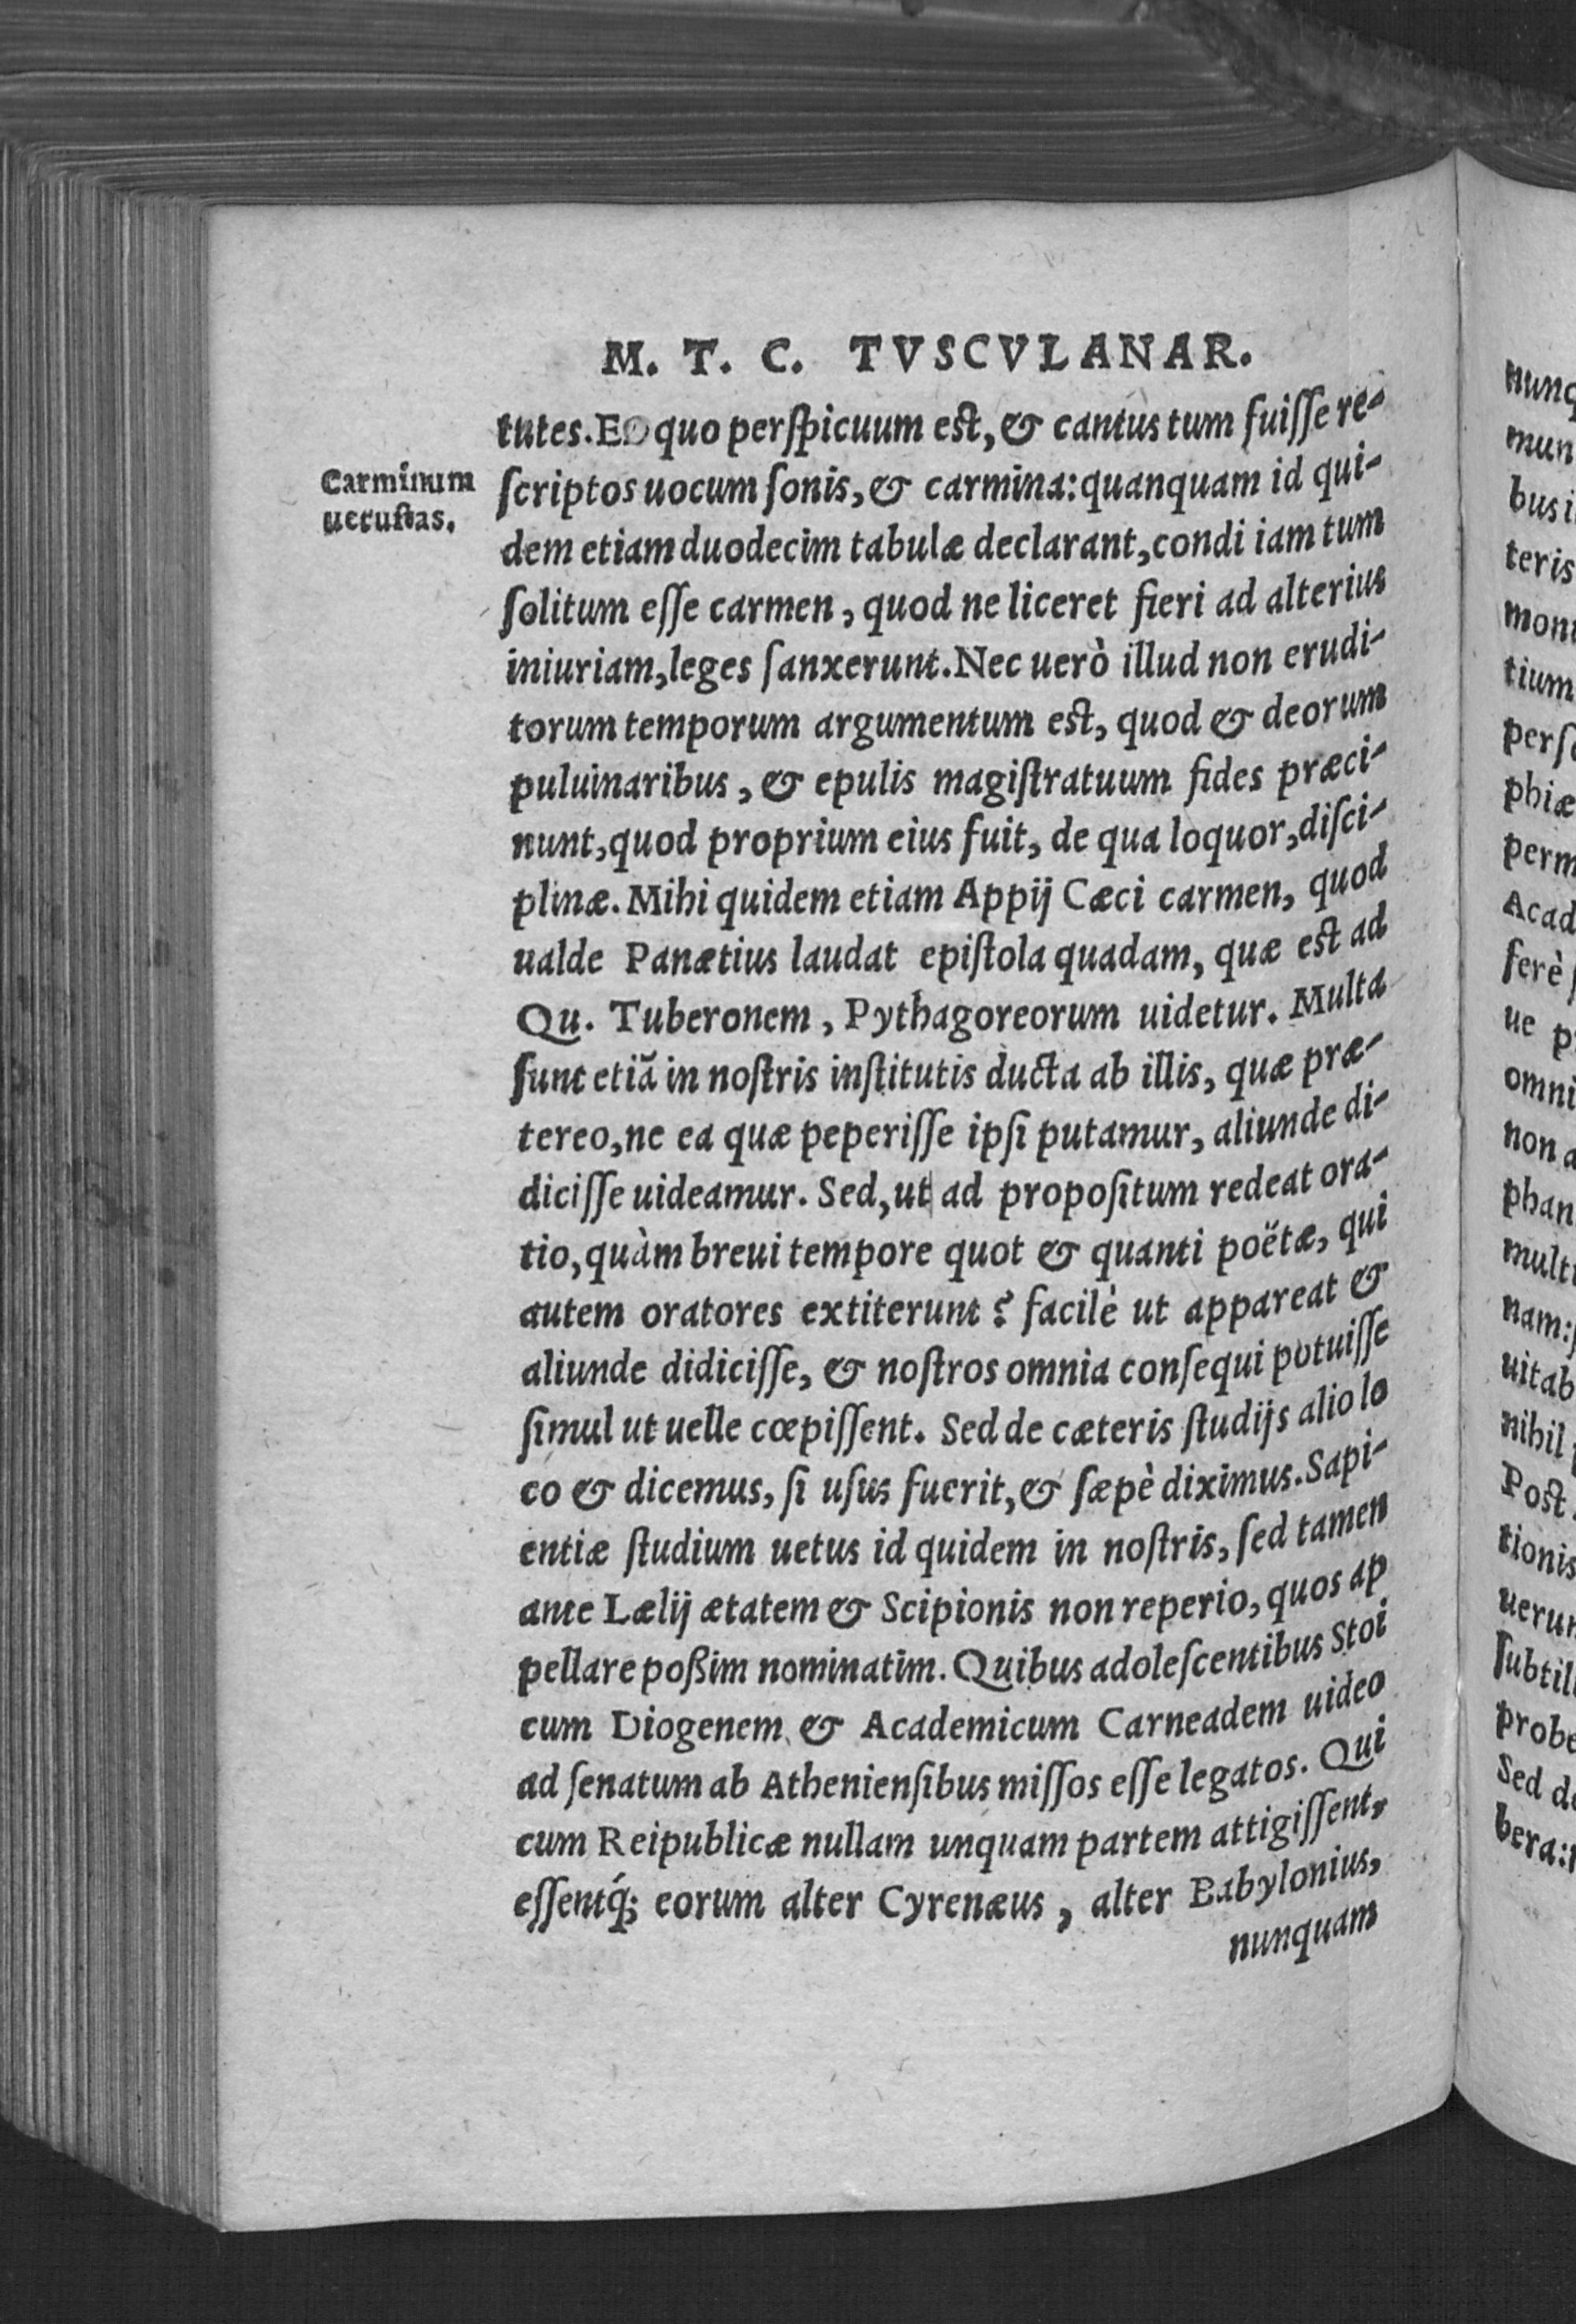 M. T. C. TVSCVLANAR.
tutes. Eo quo perſpicuum est, & cantus tum fuiſſe re-
Carminum
uetuſtas.
ſcriptos uocum ſonis, & carmina: quanquam id qui-
dem etiam duodecim tabulæ declarant, condi iam tum
ſolitum eſſe carmen, quod ne liceret fieri ad alterius
iniuriam, leges ſanxerunt. Nec uerò illud non erudi-
torum temporum argumentum est, quod & deorum
puluinaribus, & epulis magiſtratuum fides præci-
nunt, quod proprium eius fuit, de qua loquor, diſci-
plinæ. Mihi quidem etiam Appij Cæci carmen, quod
ualde Panætius laudat epiſtola quadam, quæ est ad
Qu. Tuberonem, Pythagoreorum uidetur. Multa
ſunt etiã in noſtris inſtitutis ducta ab illis, quæ præ-
tereo, ne ea quæ peperiſſe ipſi putamur, aliunde di-
diciſſe uideamur. Sed, ut ad propoſitum redeat ora-
tio, quàm breui tempore quot & quanti poëtæ, qui
autem oratores extiterunt? facilè ut appareat &
aliunde didiciſſe, & noſtros omnia conſequi potuiſſe
ſimul ut uelle cœpiſſent. Sed de cæteris ſtudijs alio lo
co & dicemus, ſi uſus fuerit, & ſæpè diximus. Sapi-
entiæ ſtudium uetus id quidem in noſtris, ſed tamen
ante Lælij ætatem & Scipionis non reperio, quos ap
pellare poßim nominatim. Quibus adoleſcentibus Stoi
cum Diogenem & Academicum Carneadem uideo
ad ſenatum ab Athenienſibus miſſos eſſe legatos. Qui
cum Reipublicæ nullam unquam partem attigiſſent,
eſſentq́; eorum alter Cyrenæus, alter Babylonius,
nunquam
nunq
mun
bus i
teris
mon
tium
perſ
phiæ
perm
Acad
ferè
ue p
omni
non a
phan
mult
nam:
uitab
nihil
Post
tionis
uerun
ſubtil
probe
Sed d
bera: